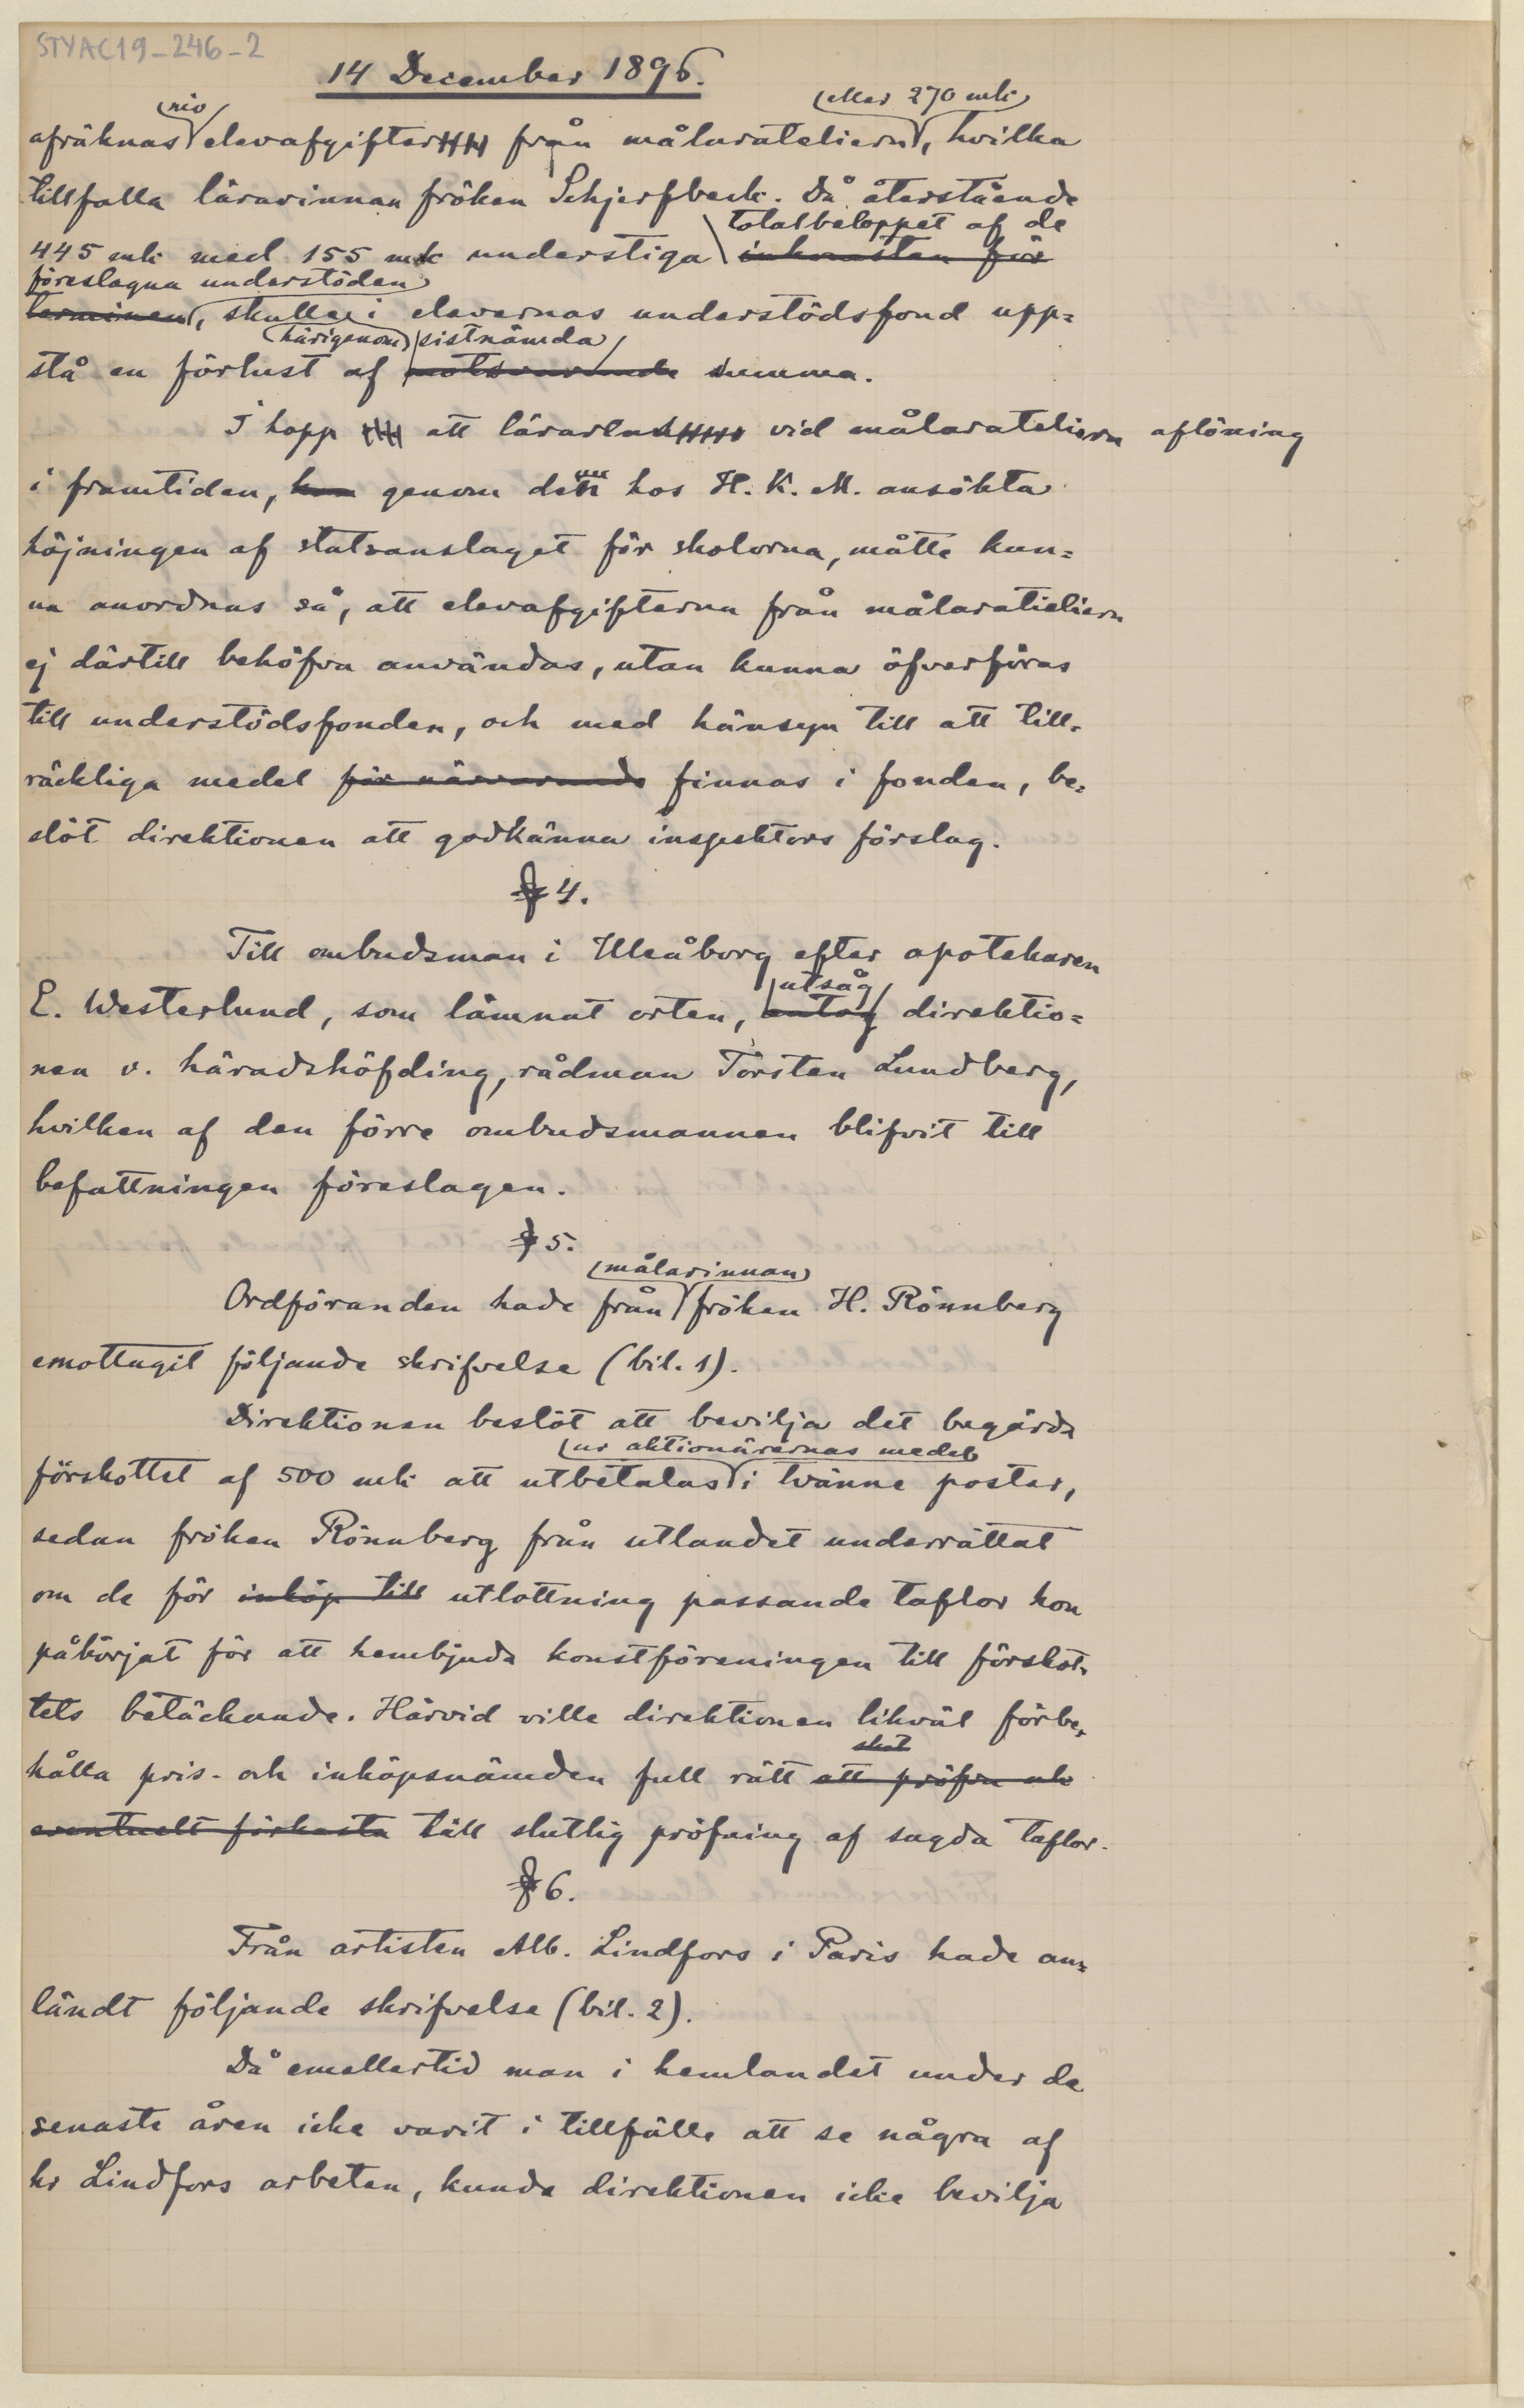 STYAC19-246-2
14 December 1896.
nio
(eller 270 mk)
afräknas elevafgifter från målarateliern, hvilka
tillfalla lärarinnan fröken Schjerfbeck. Då återstående
totalbeloppet af de
445 mk med 155 mk understiga inkomsten för
föreslagna understöden
terminen, skulle i elevernas understödsfond upp=
härigenom sistnämda
stå en förlust af motsvarande summa.
I hopp att lärarens vid målarateliern aflöning
i framtiden, kan genom den hos H. K. M. ansökta
höjningen af statsanslaget för skolorna, måtte kun=
na anordnas så, att elevafgifterna från målarateliern
ej därtill behöfva användas, utan kunna öfverföras
till understödsfonden, och med hänsyn till att till=
räckliga medel för närvarande finnas i fonden, be=
slöt direktionen att godkänna inspektors förslag.
§ 4.
Till ombudsman i Uleåborg efter apotekaren
utsåg
E. Westerlund, som lämnat orten, antog direktio=
nen v. häradshöfding, rådman Torsten Lundberg,
hvilken af den förre ombudsmannen blifvit till
befattningen föreslagen.
§ 5.
målarinnan
Ordföranden hade från fröken H. Rönnberg
emottagit följande skrifvelse (bil. 1).
Direktionen beslöt att bevilja det begärda
ur aktionärernas medel
förskottet af 500 mk att utbetalas i tvänne poster,
sedan fröken Rönnberg från utlandet underrättat
om de för inköp till utlottning passande taflor hon
påbörjat för att hembjuda konstföreningen till förskot=
tets betäckande. Härvid ville direktionen likväl förbe=
hålla pris- och inköpsnämden full rätt att pröfva och
eventuelt förkasta till slutlig pröfning af sagda taflor.
§ 6.
Från artisten Alb. Lindfors i Paris hade an=
ländt följande skrifvelse (bil. 2).
Då emellertid man i hemlandet under de
senaste åren icke varit i tillfälle att se några af
hr Lindfors arbeten, kunde direktionen icke bevilja